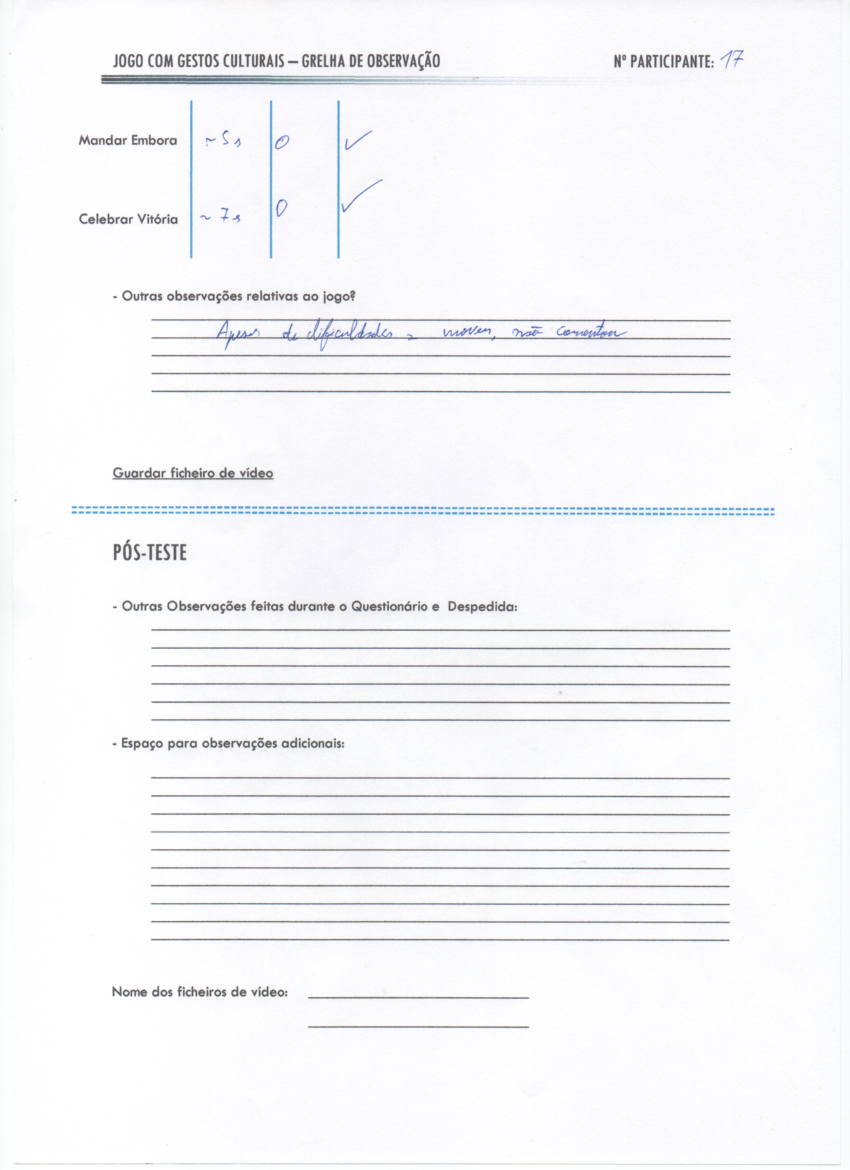 JOGO COM GESTOS CULTURAIS – GRELHA DE OBSERVAÇÃO Nº PARTICIPANTE: 17
Mandar Embora ~ 5 s 0 ✓
Celebrar Vitória ~ 7 s 0 ✓
- Outras observações relativas ao jogo?
Apesar de dificuldades a mover, não comentou
Guardar ficheiro de vídeo
PÓS-TESTE
- Outras Observações feitas durante o Questionário e Despedida:
- Espaço para observações adicionais:
Nome dos ficheiros de vídeo: